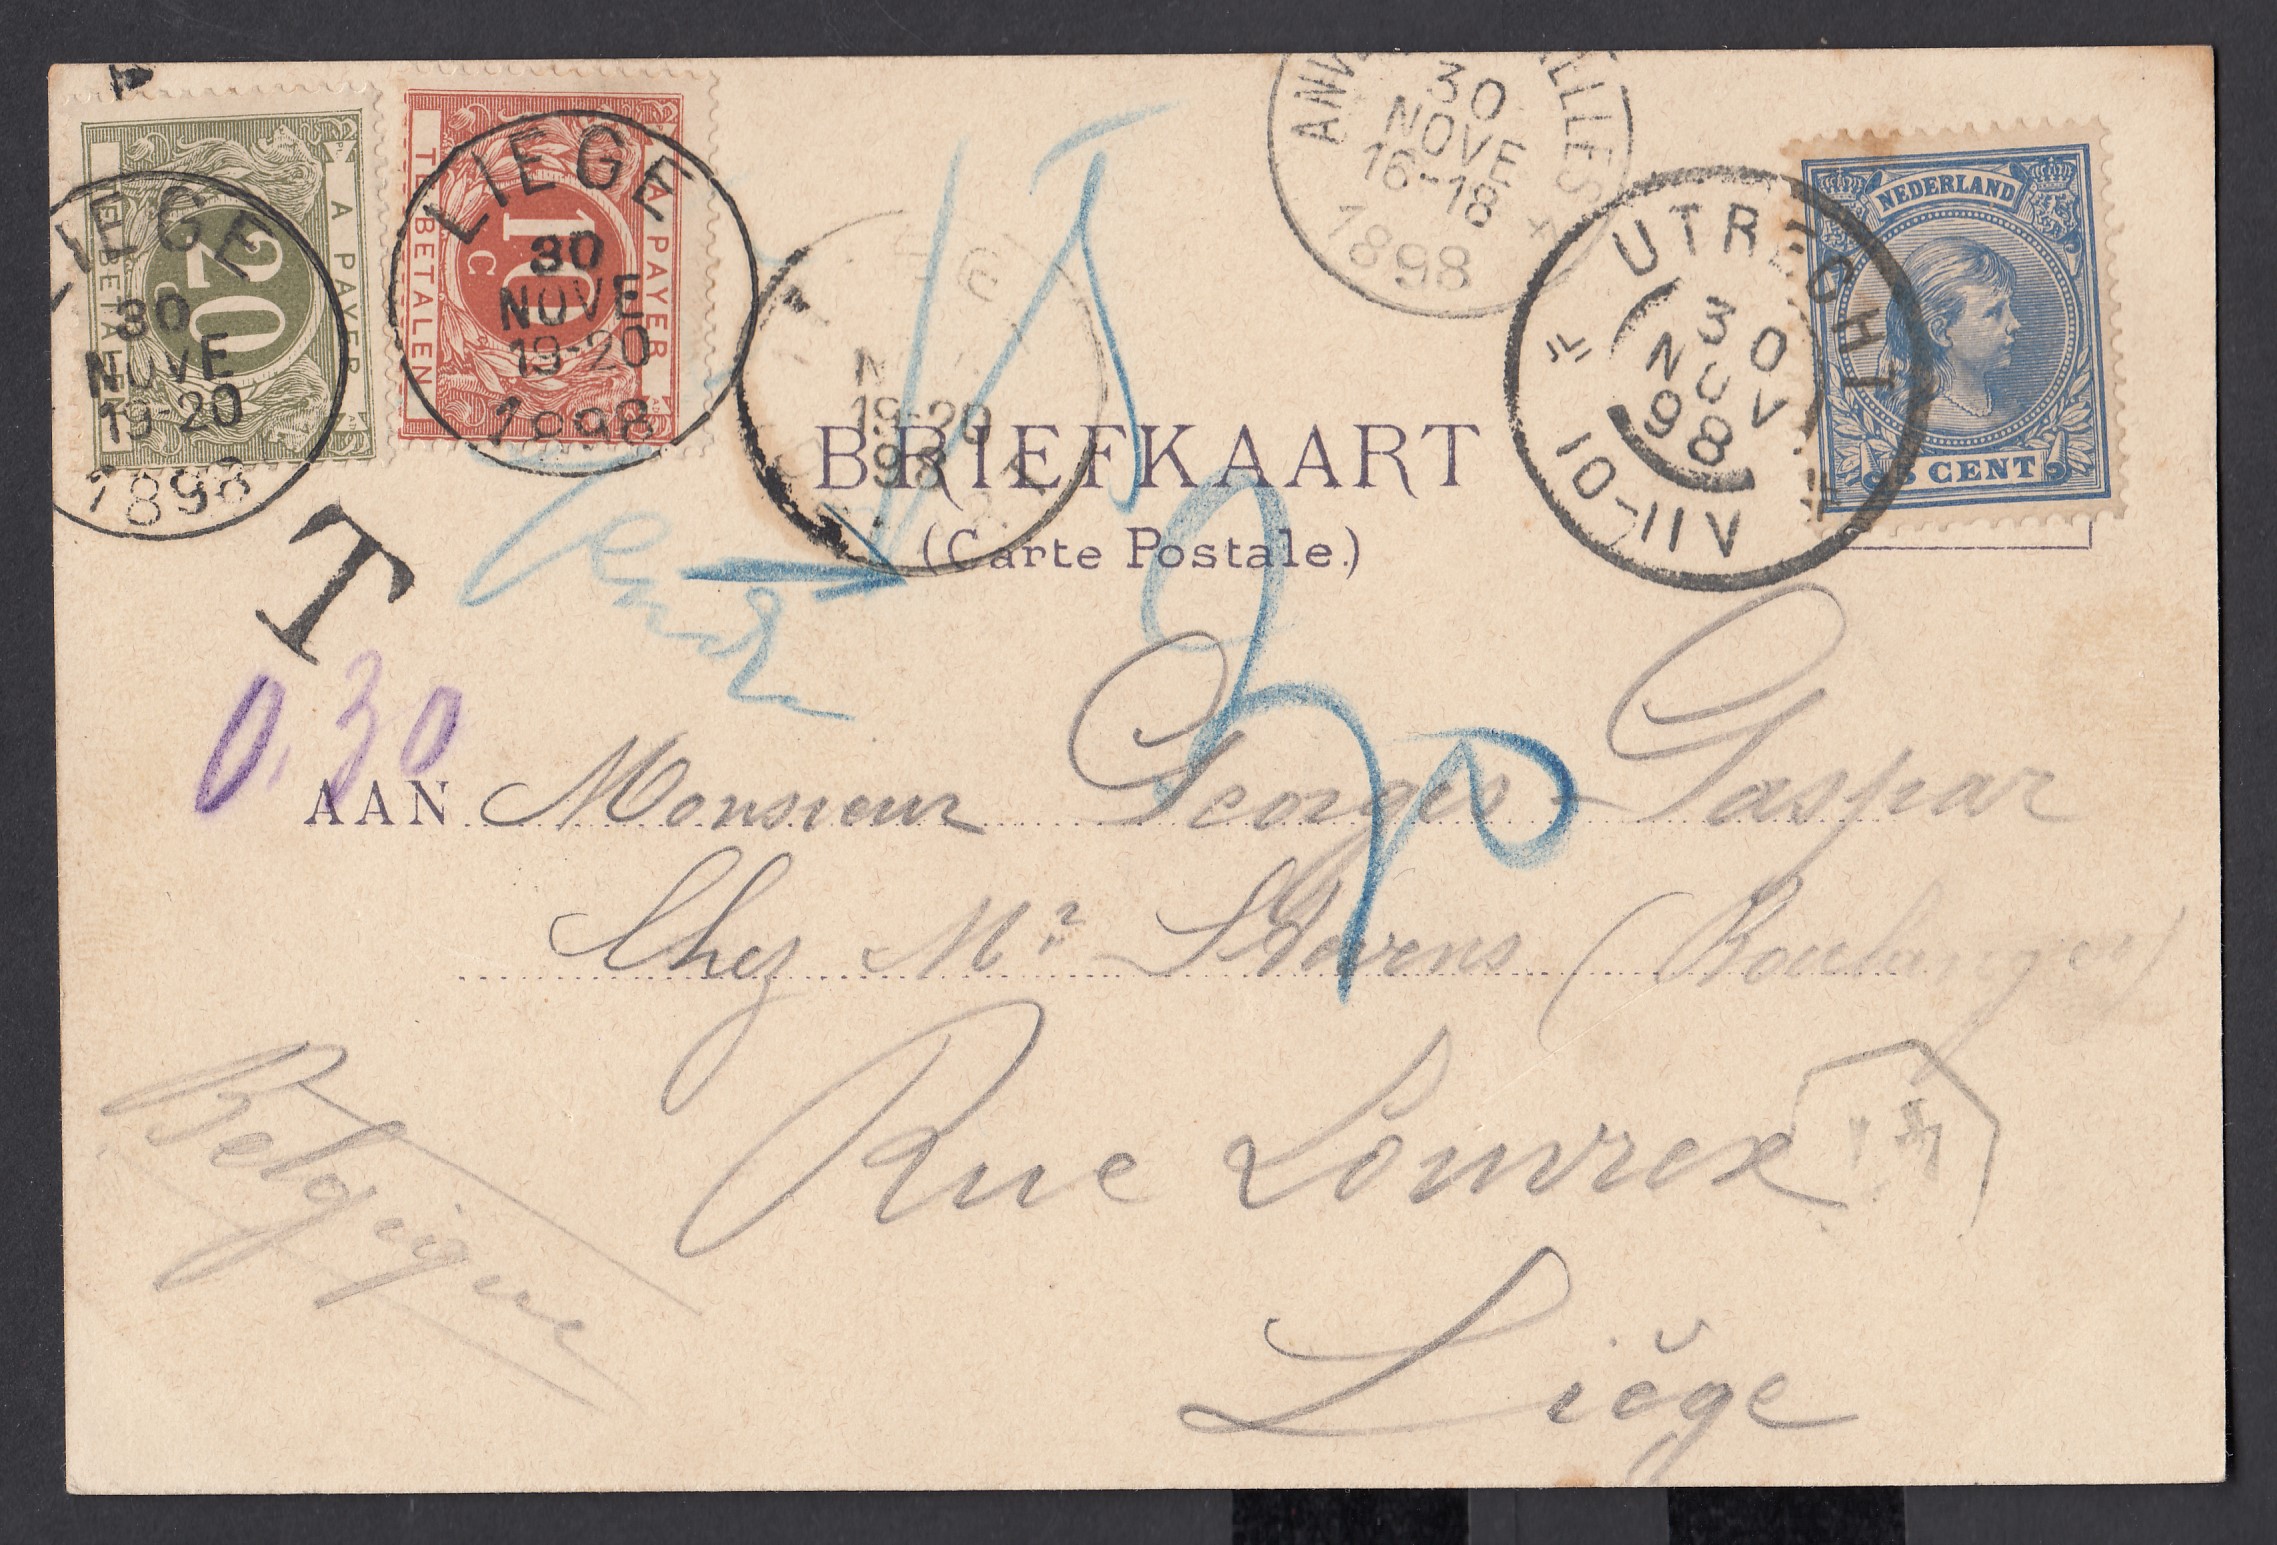 20
C
A PAYER
TE BETALEN
LIEGE
30
NOVE
19-20
1898
10
C
A PAYER
TE BETALEN
LIEGE
30
NOVE
19-20
1898
19-20
98
30
NOVE
16-18
1898
UTRECHT
30
NOV
98
10-11V
NEDERLAND
5 CENT
BRIEFKAART
(Carte Postale.)
T
0.30
30
AAN Monsieur Georges Gaspar
Chez Mr Stevens (Boulanger)
Rue Louvrex
Liège
Belgique